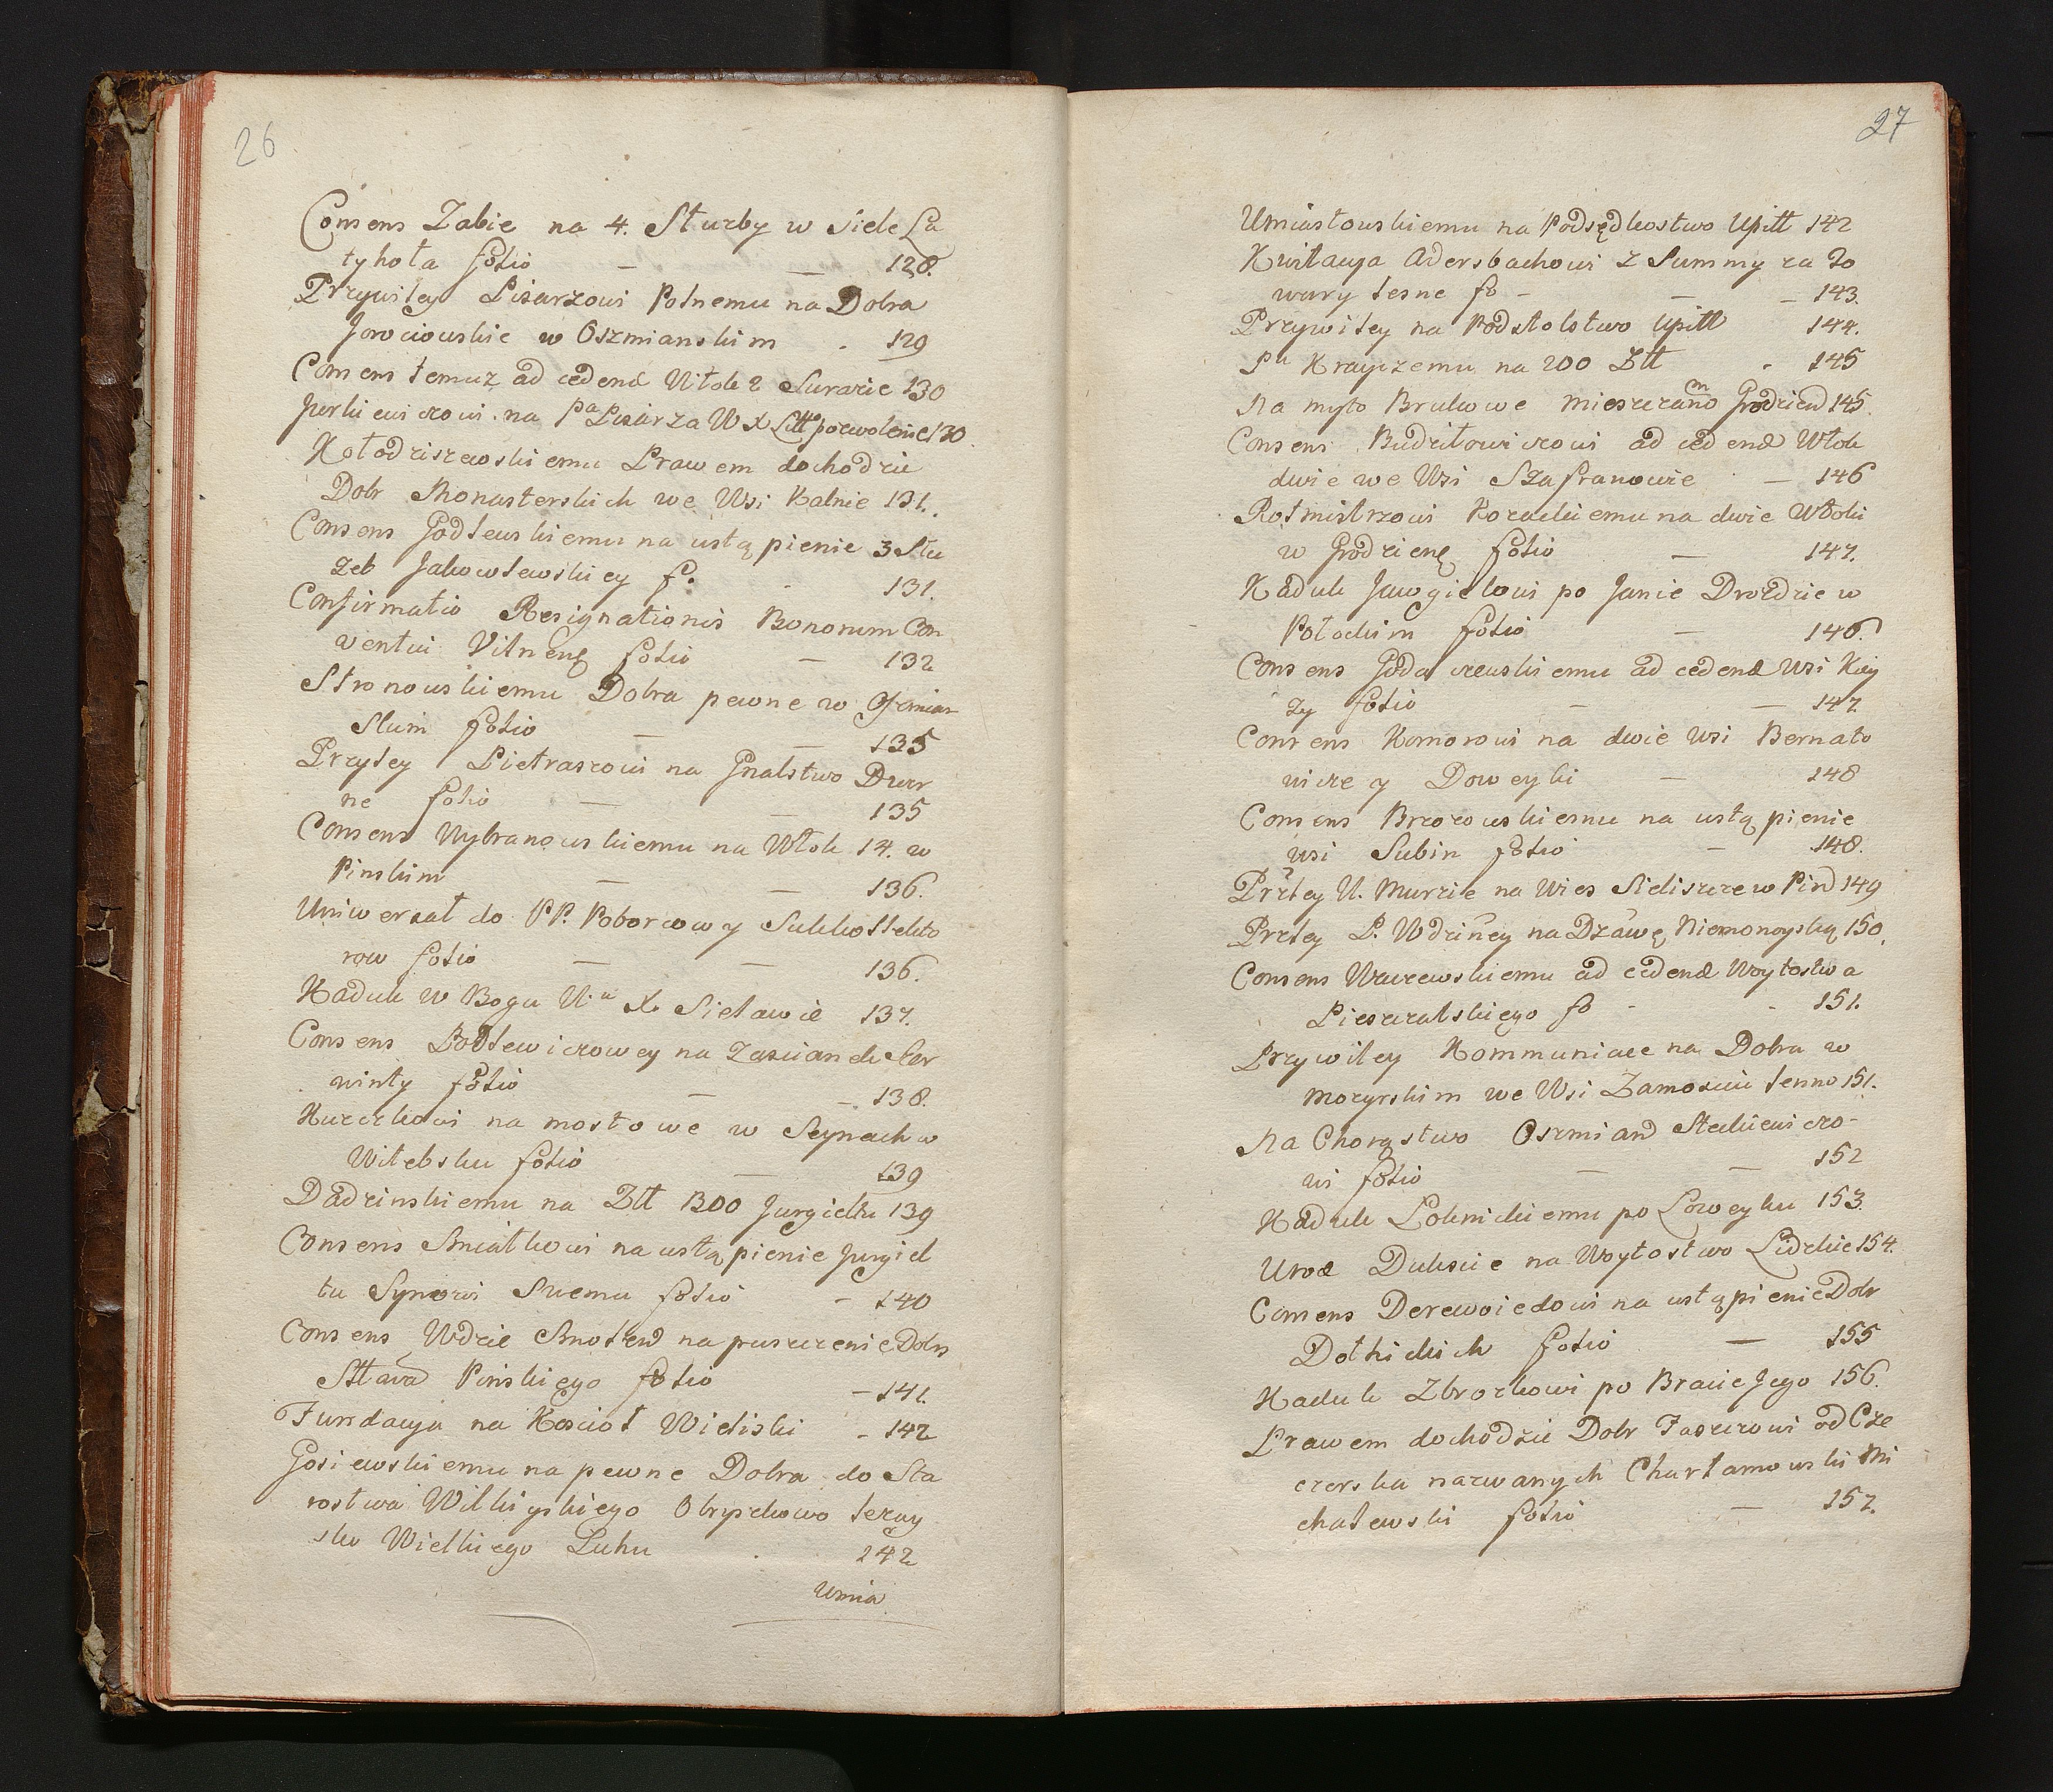 26
Consens Zabie na 4. Słuzby w Siele Ła
tyhoła folio — — 128.
Przywiley Pisarzowi Polnemu na Dobra
Jorociowskie w Oszmianskim . 129
Consens temuz ad cedend Włok 2 Surazie 130
Jurkiewiczowi na Pa Pisarza W X Litt pozwolenie 130
Kołodziszewskiemu Prawem dochodzic
Dobr Monasterskich we Wsi Kalnie 131.
Consens Godlewskiemu na ustąpienie 3 Słu
zeb Jakowlewskiey f. - 131.
Confirmatio Resignationis Bonorum Con
ventui Vilnen folio — 132
Stronowskiemu Dobra pewne w
Skim folio — — 135
Przyley Pietraszowi na Gnalstwo Dwor
ne folio — — 135
Consens Wybranowskiemu na Włok 14. w
Pinskim — — 136.
Uniwersał do PP. Poborcow y Sukkollekto
row folio — — 136.
Kaduk w Bogu W.u X. Sielawie 137.
Consens Podlewiczowey na Zascianek Cer
winty folio — — 138.
Kurczkowi na mostowe w Seynach w
Witebsku folio — 139
Dadzinskiemu na Złt 1300 Jurgieltu 139
Consens Smiatkowi na ustąpienie Jurgiel
tu Synowi Swemu folio — 140
Consens Wdzie Smolew na puszczenie Dobr
Sttawa Pinskiego folio — 141.
Fundacya na Kościoł Wieliski — 142
Gosiewskiemu na pewne Dobra do Sta
rostwa Wilkiyskiego Obryszkowo teray
sko Wielkiego Luhu . 142
Umia
27
Umiastowskiemu na Podsędkostwo Upitt 142
Kwitacya Adersbachowi z Summy za To
wary lesne fo — — — 143.
Przywiley na Podstolstwo Upitt 144.
Pu Krayczemu na 200 Złt . 145
Na myto Brukowe mieszczanom Grodzien 145.
Consens Budziłowiczowi ad cedend Włok
dwie we Wsi Szafranowie — 146
Rotmistrzowi Kozackiemu na dwie Włoki
w Grodzien folio — 147.
Kaduk Jawgiełowi po Janie Drozdzie w
Połockim folio — 146.
Consens Godaczewskiemu ad cedend Wsi Kiy
zy folio — — 147
Consens Komorowi na dwie Wsi Bernato
wicze y Doweyki — 148
Consens Brzozowskiemu na ustąpienie
Wsi Subin folio — 148.
Przley U. Murzie na Wies Sieliszcze w Pin 149
Przley P. Wdziney na Dzawę Niemonoyską 150.
Consens Wurzewskiemu ad cedend Woytostwa
Pieszczatskiego fo - - 151.
Przywiley Kommuniace na Dobra w
Mozyrskim we Wsi Zamoszu lenno 151.
Na Chorąstwo Oszmian Steckiewiczo-
wi folio — — 152
Kaduk Łoknickiemu po Łoweyku 153.
Urod Dukscie na Woytostwo Lidzkie 154.
Consens Derewoiedowi na ustąpienie Dobr
Dolhickich folio — 155
Kaduk Zbrozkowi po Bracie Jego 156.
Prawem dochodzic Dobr Faszczowi od Cze
czerska nazwanych Charłamowski Mi
chalewski folio — 157.